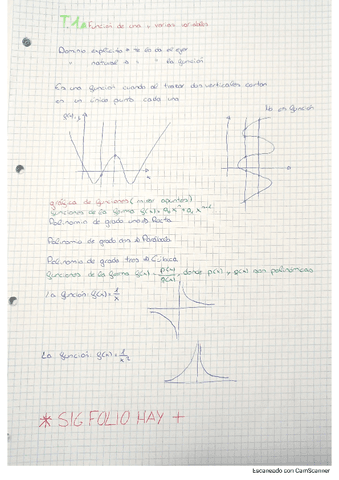 T.1. Función de una y varias variables
Dominio explícito → te lo da el ejer
" natural → " " la función
Es una función cuando al trazar dos verticales cortan
en un único punto cada una
No es función
gráfica de funciones (mirar apuntes)
funciones de la forma
Polinomio de grado uno → Recta
Polinomio de grado dos → Parábola
Polinomio de grado tres → Cúbica
funciones de la forma g(x) = p(x)/q(x), donde p(x) y q(x) son polinomios
La función: g(x) = 1/x
La función: g(x) = 1/x²
* SIG FOLIO HAY +
Escaneado con CamScanner